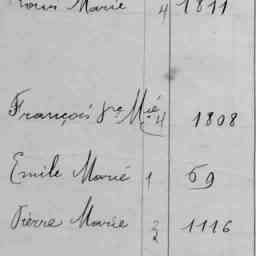 Louis Marie 4 1811
François Jne Mié 4 1808
Emile Marié 1 69
Pierre Marie 3 1116